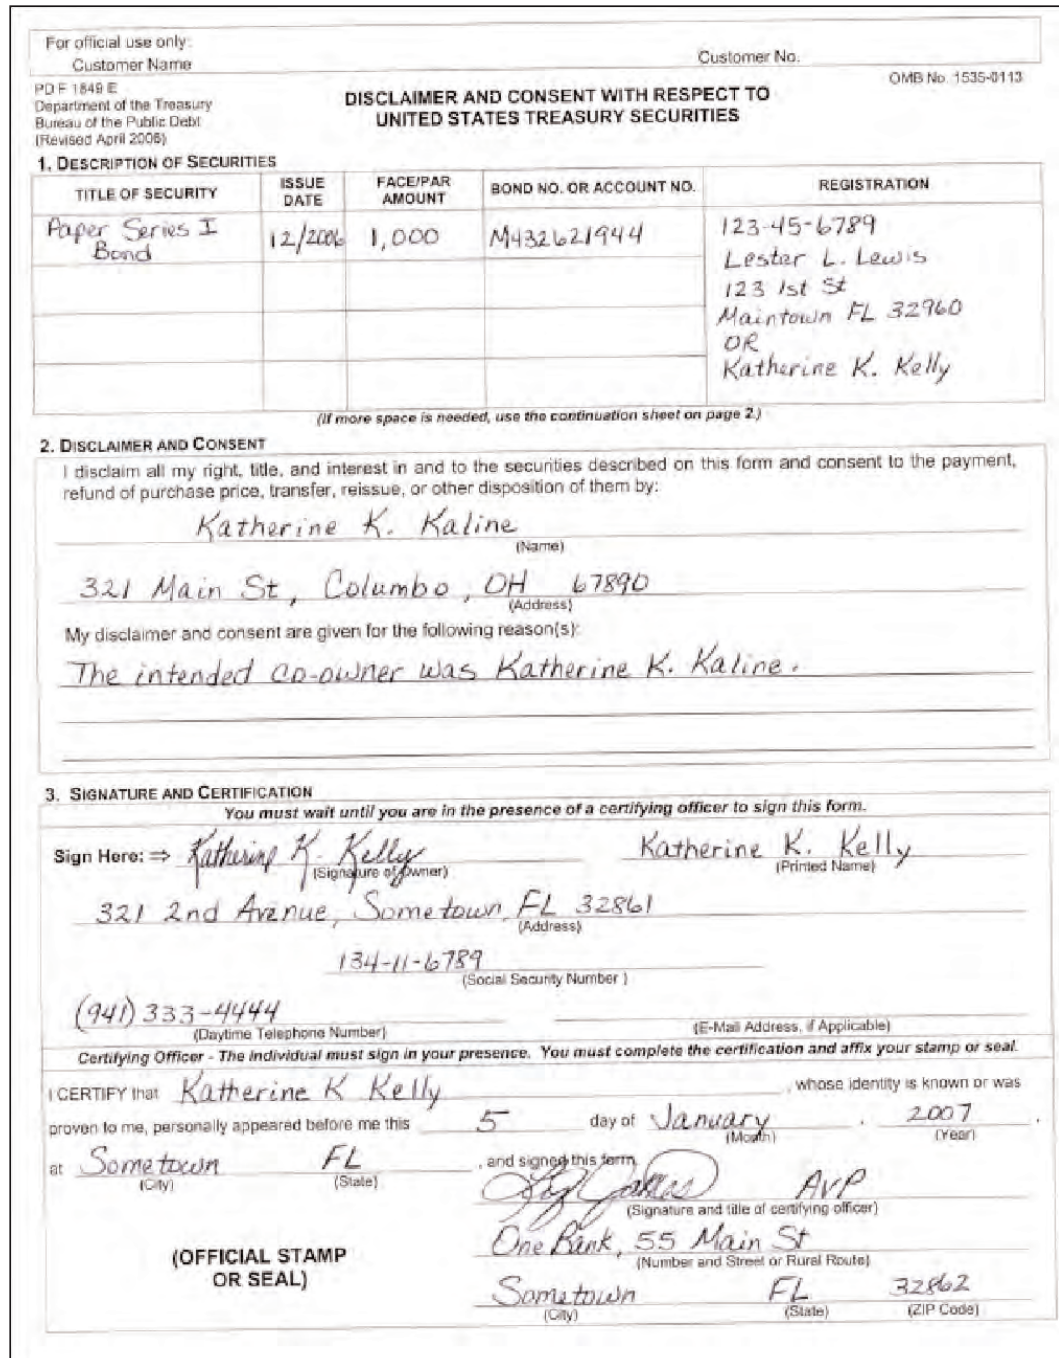 For official use only:
Customer Name
Customer No.
PD F 1849 E
Department of the Treasury
Bureau of the Public Debt
(Revised April 2006)
OMB No. 1535-0113
DISCLAIMER AND CONSENT WITH RESPECT TO
UNITED STATES TREASURY SECURITIES
1. DESCRIPTION OF SECURITIES
TITLE OF SECURITY
ISSUE DATE
FACE/PAR AMOUNT
BOND NO. OR ACCOUNT NO.
REGISTRATION
Paper Series I
Bond
12/2006
1,000
M432621944
123-45-6789
Lester L. Lewis
123 1st St
Maintown FL 32960
OR
Katherine K. Kelly
(If more space is needed, use the continuation sheet on page 2.)
2. DISCLAIMER AND CONSENT
I disclaim all my right, title, and interest in and to the securities described on this form and consent to the payment,
refund of purchase price, transfer, reissue, or other disposition of them by:
Katherine K. Kaline
(Name)
321 Main St, Columbo, OH 67890
(Address)
My disclaimer and consent are given for the following reason(s):
The intended co-owner was Katherine K. Kaline.
3. SIGNATURE AND CERTIFICATION
You must wait until you are in the presence of a certifying officer to sign this form.
Sign Here: ⇒ Katherine K. Kelly
(Signature of Owner)
Katherine K. Kelly
(Printed Name)
321 2nd Avenue, Sometown, FL 32861
(Address)
134-11-6789
(Social Security Number )
(941) 333-4444
(Daytime Telephone Number)
(E-Mail Address, if Applicable)
Certifying Officer - The individual must sign in your presence. You must complete the certification and affix your stamp or seal.
I CERTIFY that Katherine K Kelly , whose identity is known or was
proven to me, personally appeared before me this 5 day of January , 2007 .
(Month)
(Year)
at Sometown FL , and signed this form.
(City)
(State)
AVP
(Signature and title of certifying officer)
One Bank, 55 Main St
(Number and Street or Rural Route)
(OFFICIAL STAMP
OR SEAL)
Sometown FL 32862
(City)
(State)
(ZIP Code)